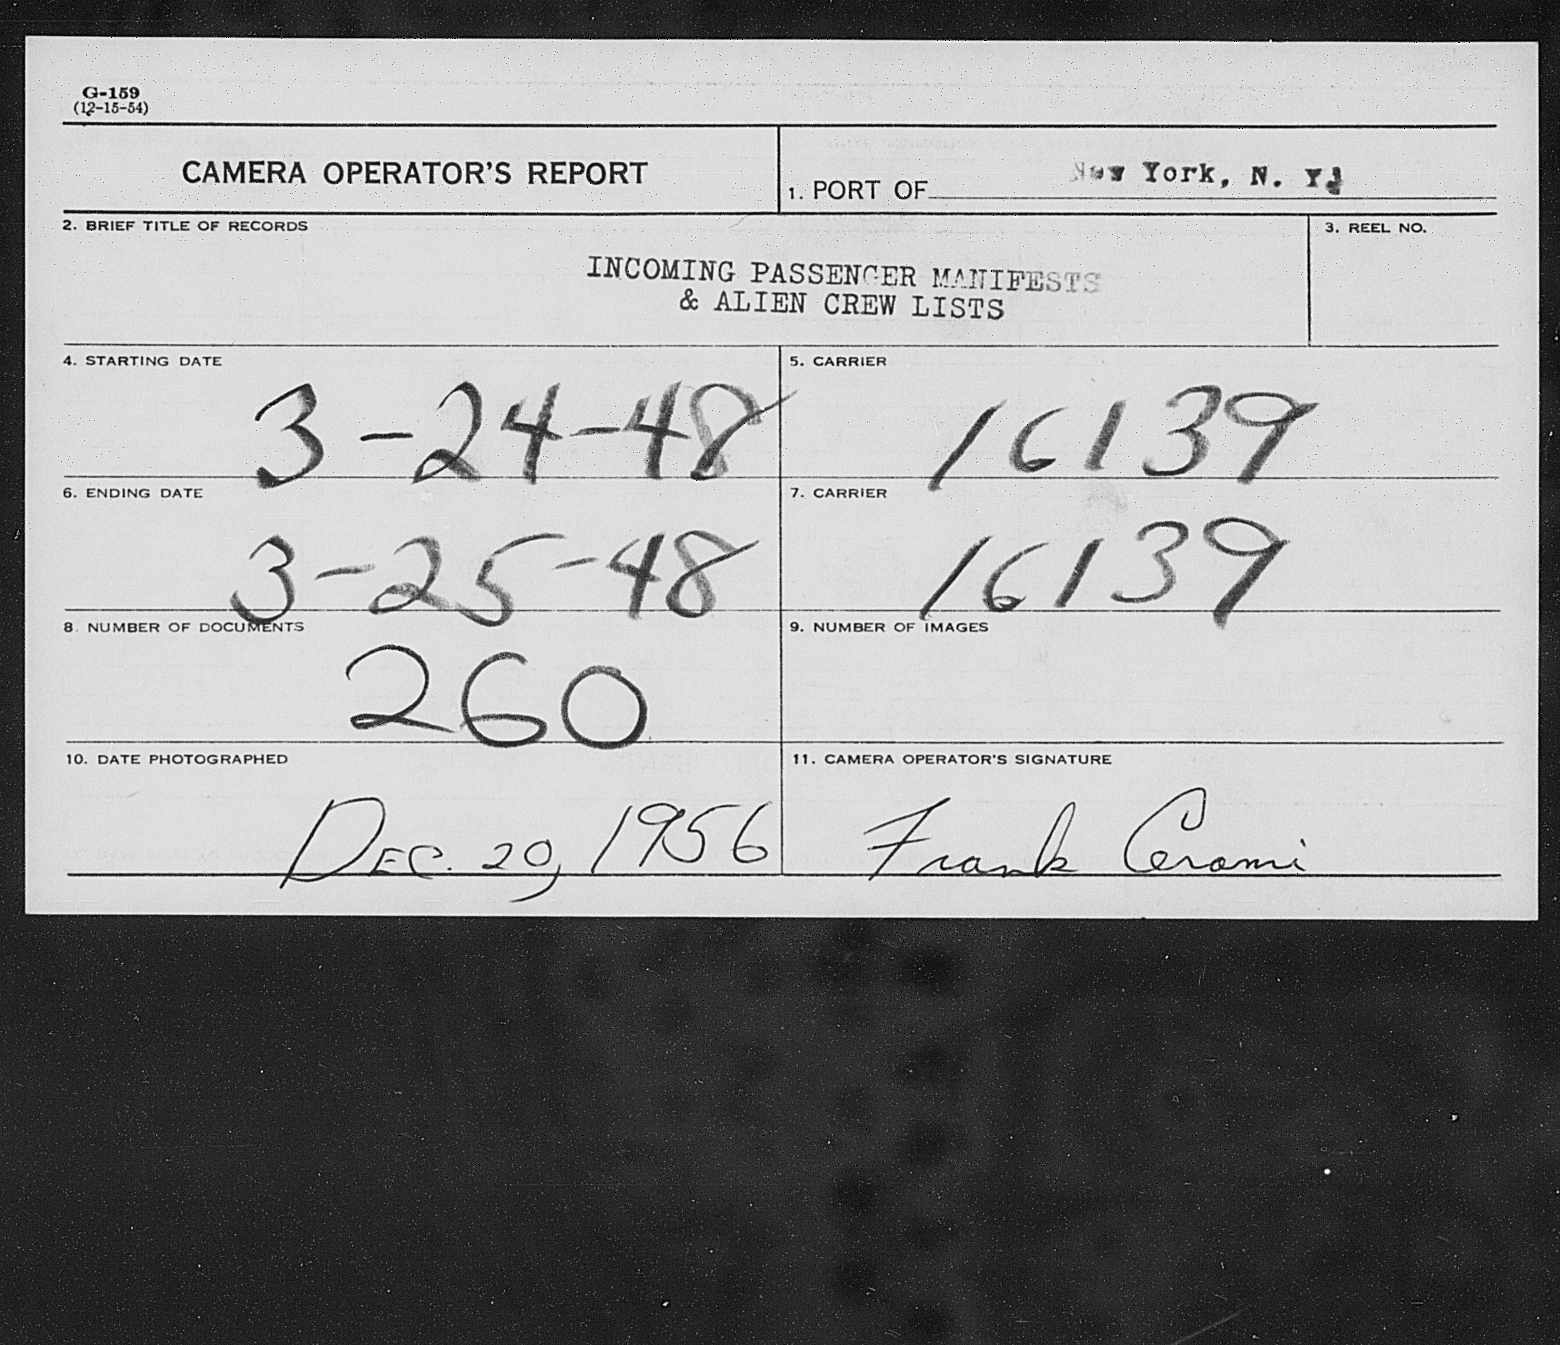 G-159
(12-15-54)
CAMERA OPERATOR'S REPORT
1. PORT OF New York, N. Y.
2. BRIEF TITLE OF RECORDS
3. REEL NO.
INCOMING PASSENGER MANIFESTS
& ALIEN CREW LISTS
4. STARTING DATE
3-24-48
5. CARRIER
16139
6. ENDING DATE
3-25-48
7. CARRIER
16139
8. NUMBER OF DOCUMENTS
260
9. NUMBER OF IMAGES
10. DATE PHOTOGRAPHED
DEC. 20, 1956
11. CAMERA OPERATOR'S SIGNATURE
Frank Cerami